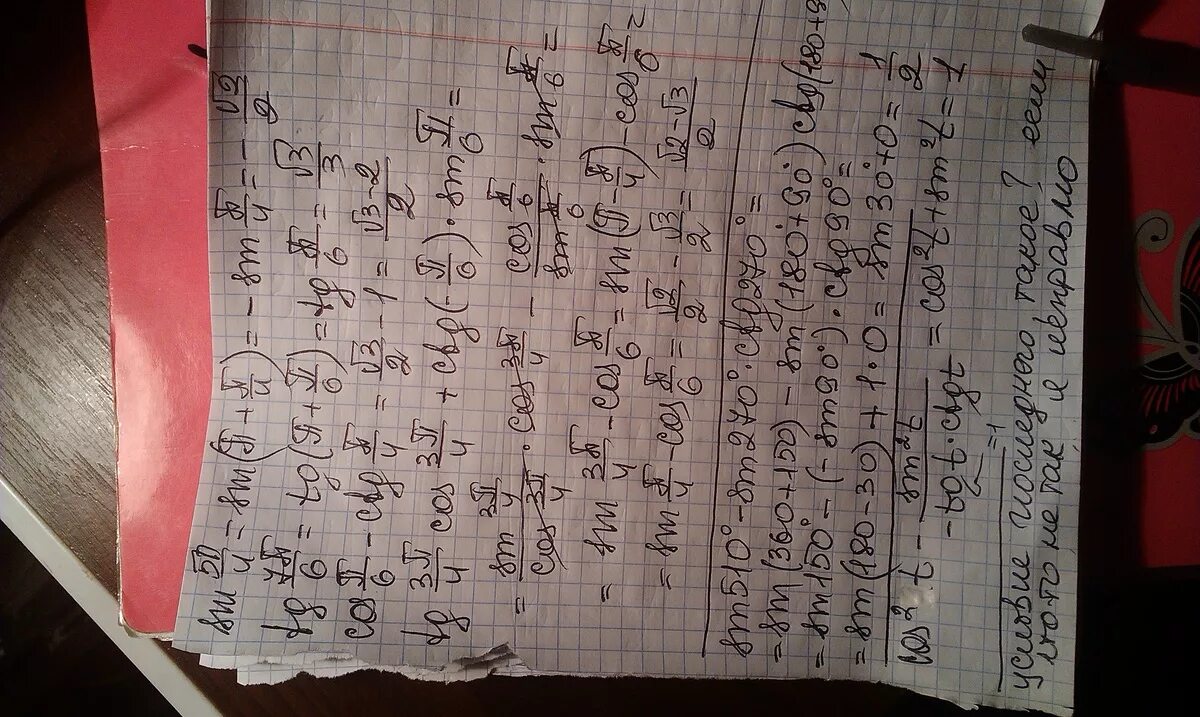 sin 5π/4 = sin(π + π/4) = - sin π/4 = - √2/2
tg 7π/6 = tg(π + π/6) = tg π/6 = √3/3
cos π/6 - ctg π/4 = √3/2 - 1 = √3-2/2
tg 3π/4 cos 3π/4 + ctg(-π/6) · sin π/6 =
= sin 3π/4 / cos 3π/4 · cos 3π/4 - cos π/6 / sin π/6 · sin π/6 =
= sin 3π/4 - cos π/6 = sin(π - π/4) - cos π/6 =
= sin π/4 - cos π/6 = √2/2 - √3/2 = √2-√3/2
sin510° - sin270° · ctg270° =
= sin(360+150) - sin(180°+90°) ctg(180+9
= sin150° - (-sin90°) · ctg90° =
= sin(180-30) + 1·0 = sin30°+0 = 1/2
cos² t - sin²t / -tgt·ctgt = cos²t + sin²t = 1
=1
условие последнего такое? если
что не так я исправлю